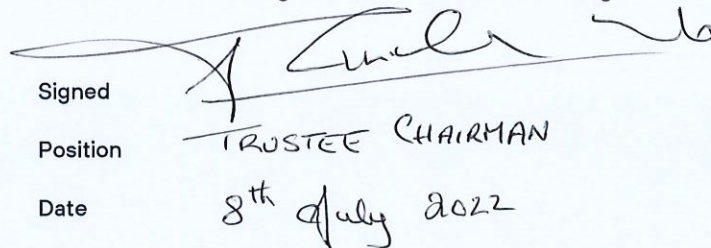 Signed
Position TRUSTEE CHAIRMAN
Date 8th July 2022